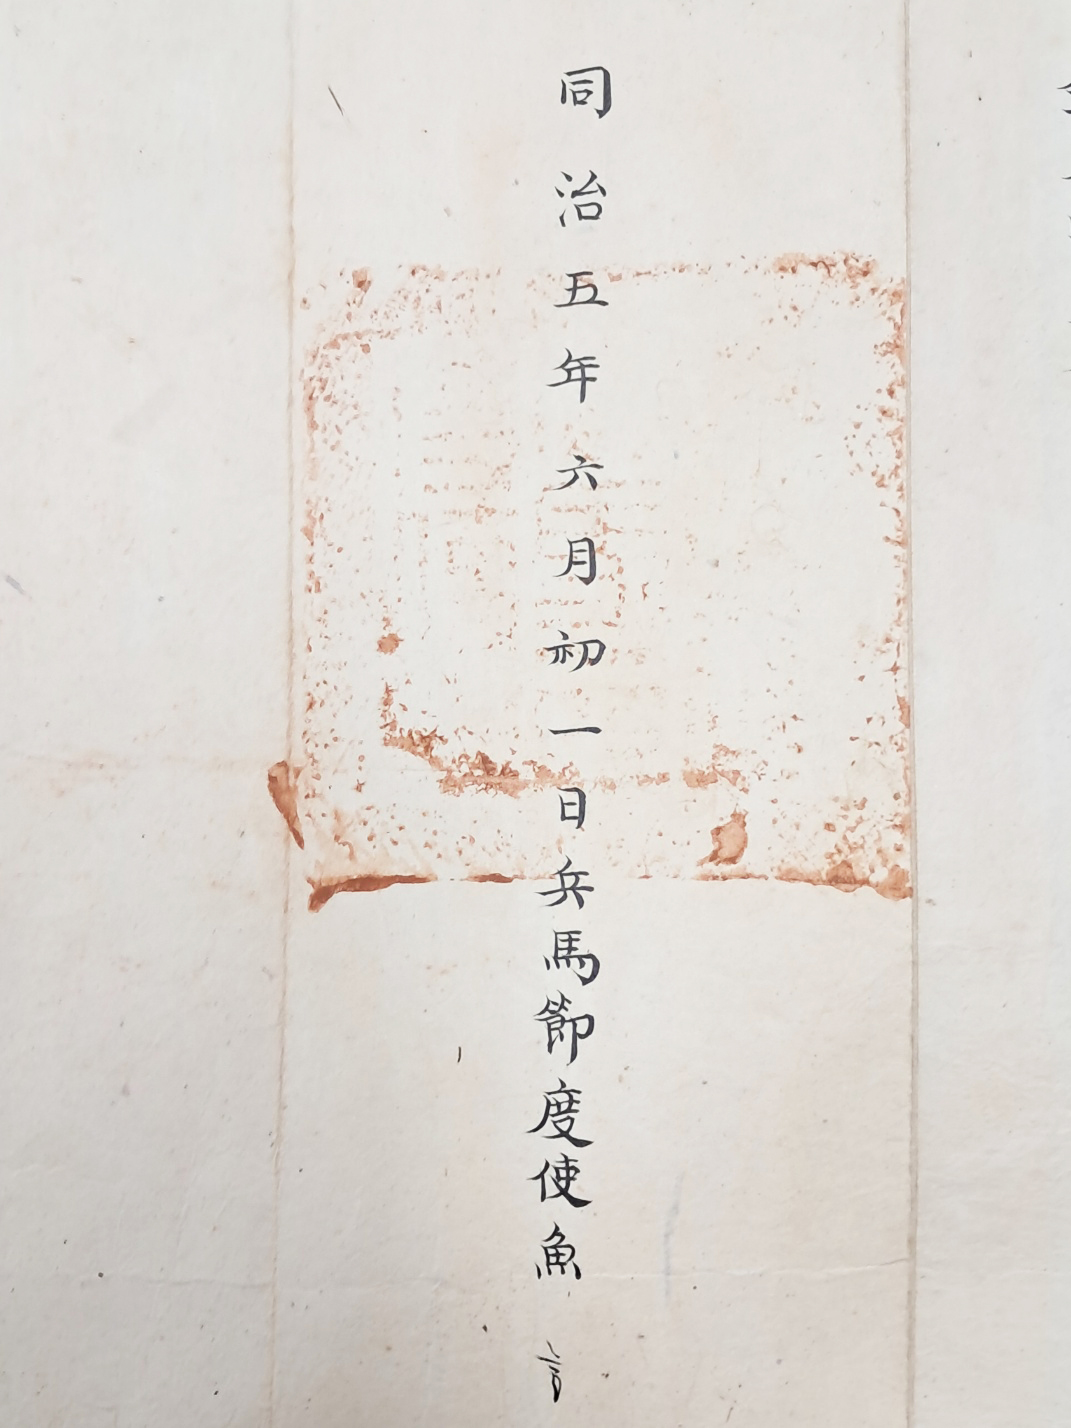 同治五年六月初一日兵馬節度使魚